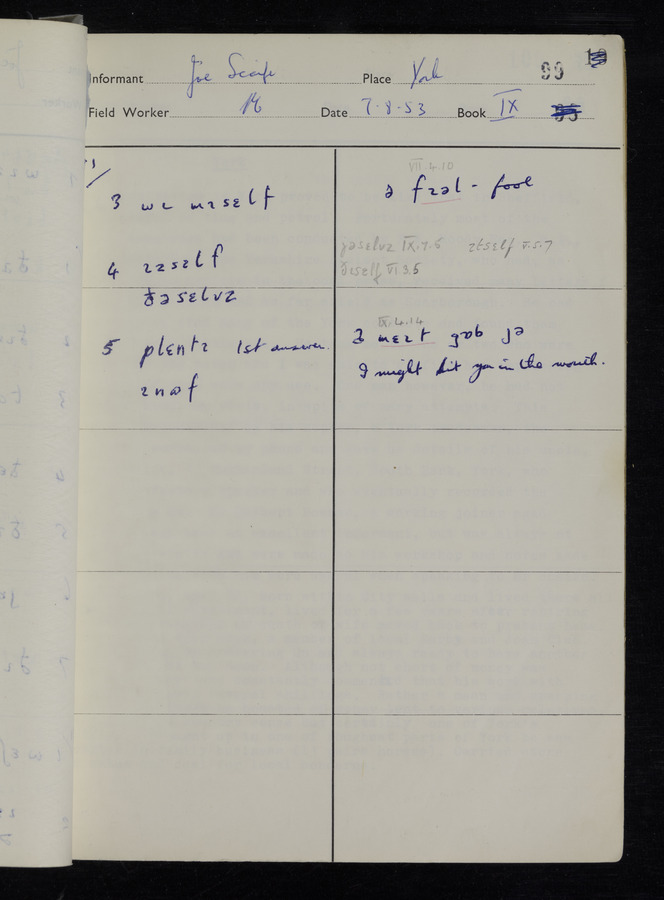 Informant Joe Scaife Place York 99
Field Worker Date 7-8-53 Book IX
3 wɪ mɪsɛlf
ə fɪəl - fool
VII.4.10
4 ɪzsɛlf
ðəsɛlvz
jəsɛlvz IX.7.6 ɪtsɛlf V.5.7
ðɪsɛlf VI 3.5
5 plɛntɪ 1st answer.
ɪnʊf
IX.4.14
mɛɪt gɒb jə
I might hit you in the mouth.